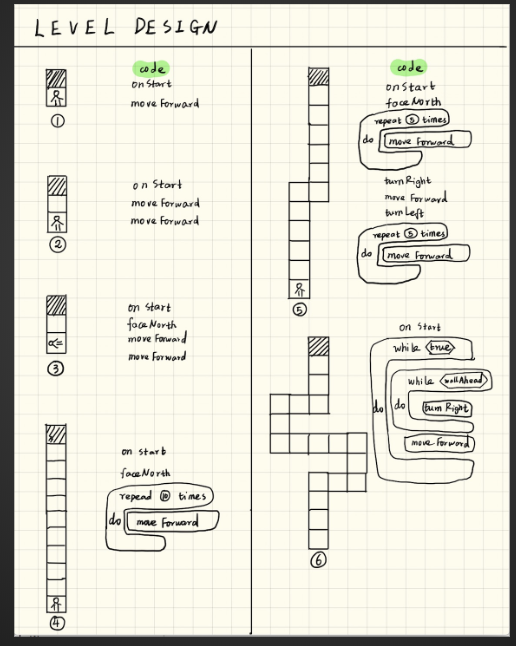 LEVEL DESIGN
code
on Start
move Forward
①
on Start
move Forward
move Forward
②
on Start
face North
move Forward
move Forward
③
on Start
face North
repead ⑩ times
do move Forward
④
code
on Start
face North
repeat ⑤ times
do move Forward
turn Right
move Forward
turn Left
repeat ⑤ times
do move Forward
⑤
on Start
while true
while wall Ahead
do do turn Right
move Forward
⑥